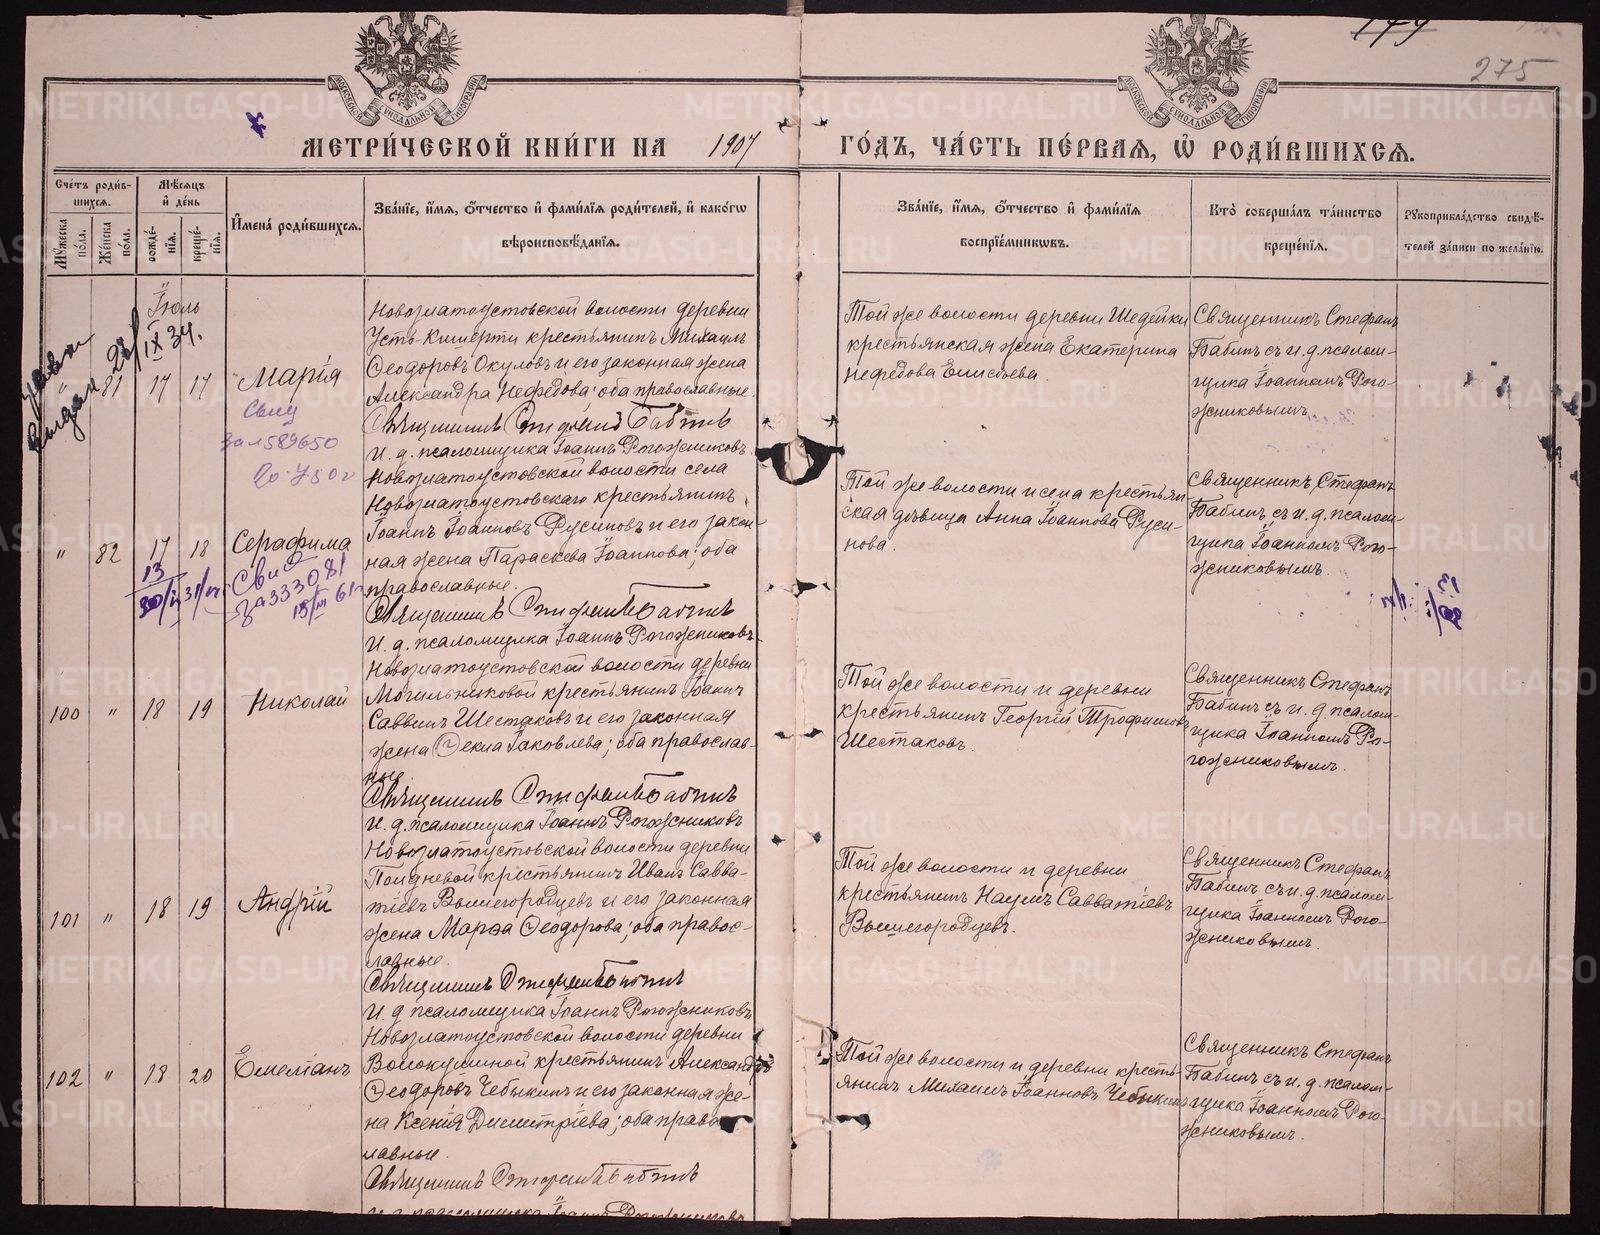 179
275
МЕТРИ́ЧЕСКОЙ КНИ́ГИ НА 1907 ГО́ДЪ, ЧА́СТЬ ПЕ́РВАЯ, Ѽ РОДИ́ВШИХСЯ.
Счетъ роди́вшихся.
Му́жеска по́ла.
Же́нска по́ла.
Мѣсяцъ и де́нь
рожде́нія.
креще́нія.
Имена̀ роди́вшихся.
Зва́ніе, и́мя, ѻ́тчество и фами́лія роди́телей, и како́гѡ
вѣроисповѣ́данія.
Зва́ніе, и́мя, ѻ́тчество и фами́лія
воспріе́мникѡвъ.
Кто̀ соверша́лъ та́инство
креще́нія.
Рꙋкоприкла́дство свидѣ́-
телей за́писи по жела́нію.
Іюль
IX 34.
" 81 17 17 Марія
Новозлатоустовской волости деревни
Усть-Кишерти крестьянинъ Михаилъ
Ѳеодоровъ Окуловъ и его законная жена
Александра Нефедова; оба православные.
Священникъ Стефанъ Бабинъ
и. д. псаломщика Іоаннъ Рогожниковъ
Той же волости деревни Шедейки
крестьянская жена Екатерина
Нефедова Елисѣева.
Священникъ Стефанъ
Бабинъ съ и. д. псалом-
щика Іоанномъ Рого-
жниковымъ.
зал 589650
" 82 17 18 Серафима
Новозлатоустовской волости села
Новозлатоустовскаго крестьянинъ
Іоаннъ Іоанновъ Русиновъ и его закон-
ная жена Параскева Іоаннова; оба
православные.
Священникъ Стефанъ Бабинъ
и. д. псаломщика Іоаннъ Рогожниковъ
Той же волости и села крестьян-
ская дѣвица Анна Іоаннова Руси-
нова.
Священникъ Стефанъ
Бабинъ съ и. д. псалом-
щика Іоанномъ Рого-
жниковымъ.
Свид
за 333081
15/III 61
100 " 18 19 Николай
Новозлатоустовской волости деревни
Могильниковой крестьянинъ Іоаннъ
Саввинъ Шестаковъ и его законная
жена Ѳекла Іаковлева; оба православ-
ные.
Священникъ Стефанъ Бабинъ
и. д. псаломщика Іоаннъ Рогожниковъ
Той же волости и деревни
крестьянинъ Георгій Трофимовъ
Шестаковъ.
Священникъ Стефанъ
Бабинъ съ и. д. псалом-
щика Іоанномъ Ро-
гожниковымъ.
101 " 18 19 Андрей
Новозлатоустовской волости деревни
Полдневой крестьянинъ Иванъ Савва-
тіевъ Вышегородцевъ и его законная
жена Марѳа Ѳеодорова; оба правос-
лавные.
Священникъ Стефанъ Бабинъ
и. д. псаломщика Іоаннъ Рогожниковъ
Той же волости и деревни
крестьянинъ Наумъ Савватіевъ
Вышегородцевъ.
Священникъ Стефанъ
Бабинъ съ и. д. псалом-
щика Іоанномъ Рого-
жниковымъ.
102 " 18 20 Емеліанъ
Новозлатоустовской волости деревни
Волокушиной крестьянинъ Александръ
Ѳеодоровъ Чебыкинъ и его законная же-
на Ксенія Димитріева; оба правос-
лавные.
Священникъ Стефанъ Бабинъ
и. д. псаломщика Іоаннъ Рогожниковъ
Той же волости и деревни кресть-
янинъ Михаилъ Іоанновъ Чебыкинъ
Священникъ Стефанъ
Бабинъ съ и. д. псалом-
щика Іоанномъ Рого-
жниковымъ.
METRIKI.GASO-URAL.RU